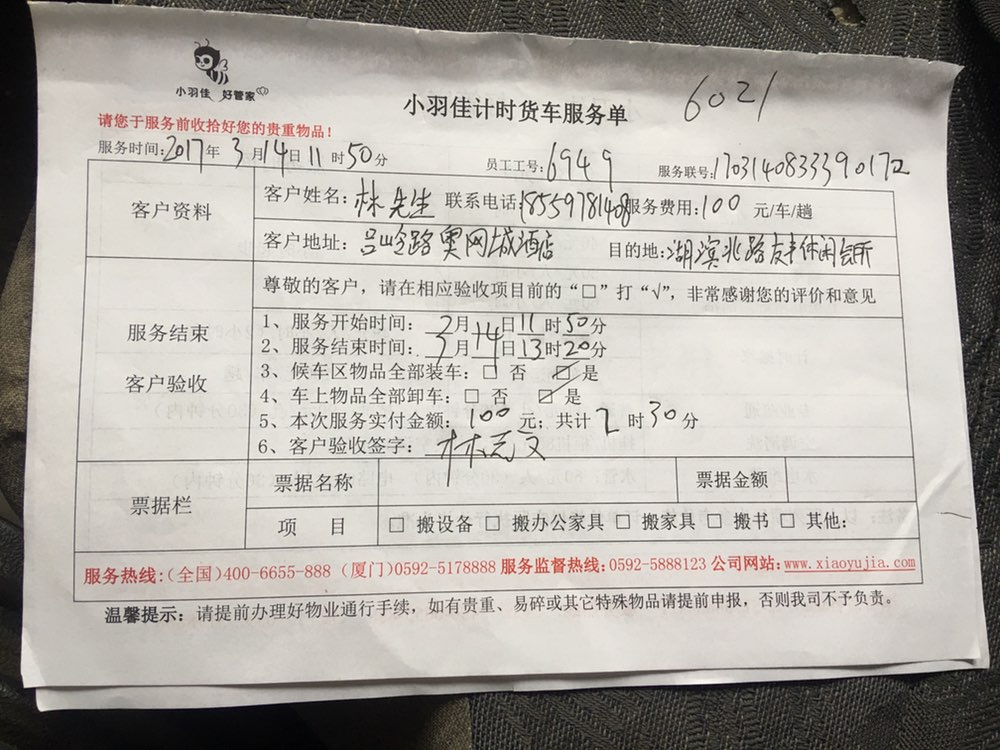 小羽佳 好管家
小羽佳计时货车服务单
6021
请您于服务前收拾好您的贵重物品！
服务时间:2017年 3月14日11时50分 员工工号:6949 服务联号:1703140833390172
客户资料
客户姓名:林先生 联系电话:18559781408服务费用:100 元/车/趟
客户地址:吕岭路奥网城酒店 目的地:湖滨北路友丰休闲会所
尊敬的客户，请在相应验收项目前的“□”打“√”，非常感谢您的评价和意见
服务结束
客户验收
1、服务开始时间：3月14日11时50分
2、服务结束时间：3月14日13时20分
3、候车区物品全部装车：□ 否 ☑ 是
4、车上物品全部卸车：□ 否 ☑ 是
5、本次服务实付金额：100元；共计2时30分
6、客户验收签字：
票据栏
票据名称 票据金额
项 目 □ 搬设备 □ 搬办公家具 □ 搬家具 □ 搬书 □ 其他：
服务热线:(全国)400-6655-888 (厦门)0592-5178888 服务监督热线:0592-5888123 公司网站:www.xiaoyujia.com
温馨提示：请提前办理好物业通行手续，如有贵重、易碎或其它特殊物品请提前申报，否则我司不予负责。